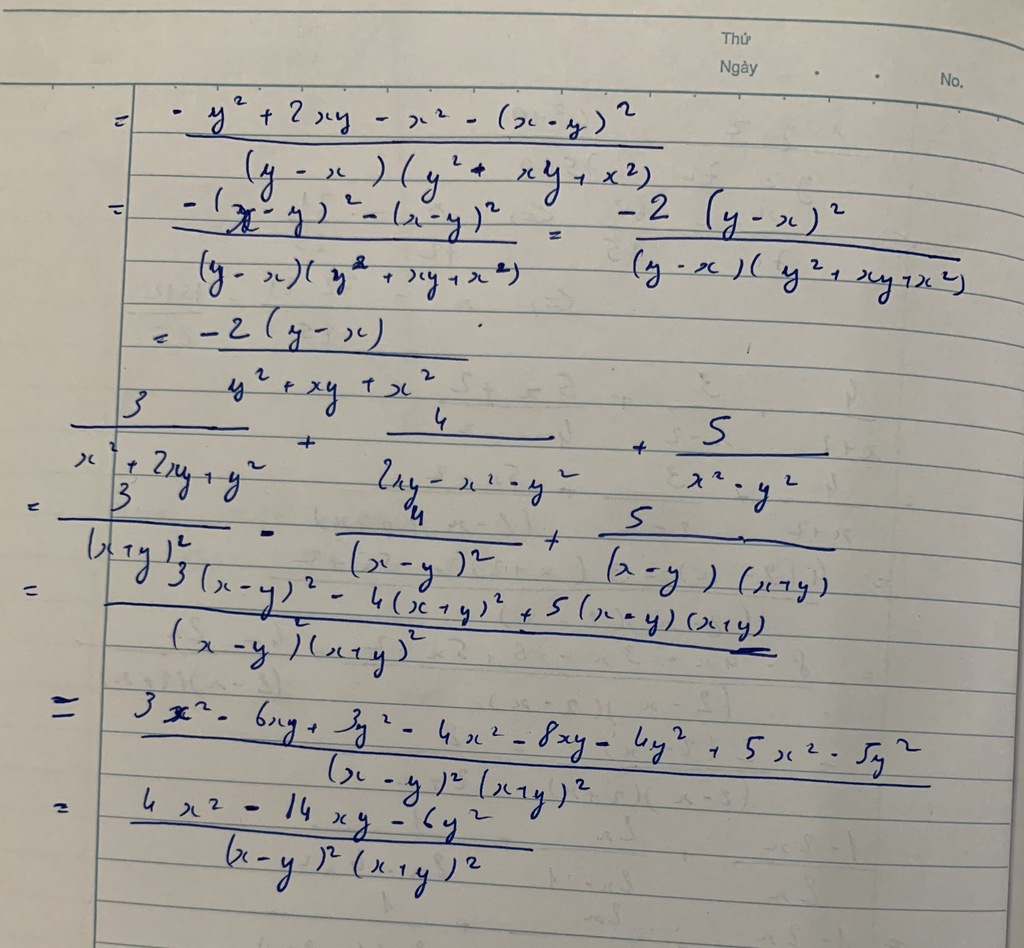 Thứ
Ngày . . No.
= - y² + 2xy - x² - (x - y)²
(y - x) (y² + xy + x²)
= -(x - y)² - (x - y)² = -2 (y - x)²
(y - x)(y² + xy + x²) (y - x)(y² + xy + x²)
= -2 (y - x)
y² + xy + x²
3 + 4 + 5
x² + 2xy + y² 2xy - x² - y² x² - y²
= 3 - 4 + 5
(x+y)² (x - y)² (x - y) (x+y)
= 3(x - y)² - 4(x + y)² + 5(x - y)(x+y)
(x - y)²(x+y)²
= 3x² - 6xy + 3y² - 4x² - 8xy - 4y² + 5x² - 5y²
(x - y)² (x+y)²
= 4x² - 14xy - 6y²
(x - y)² (x + y)²